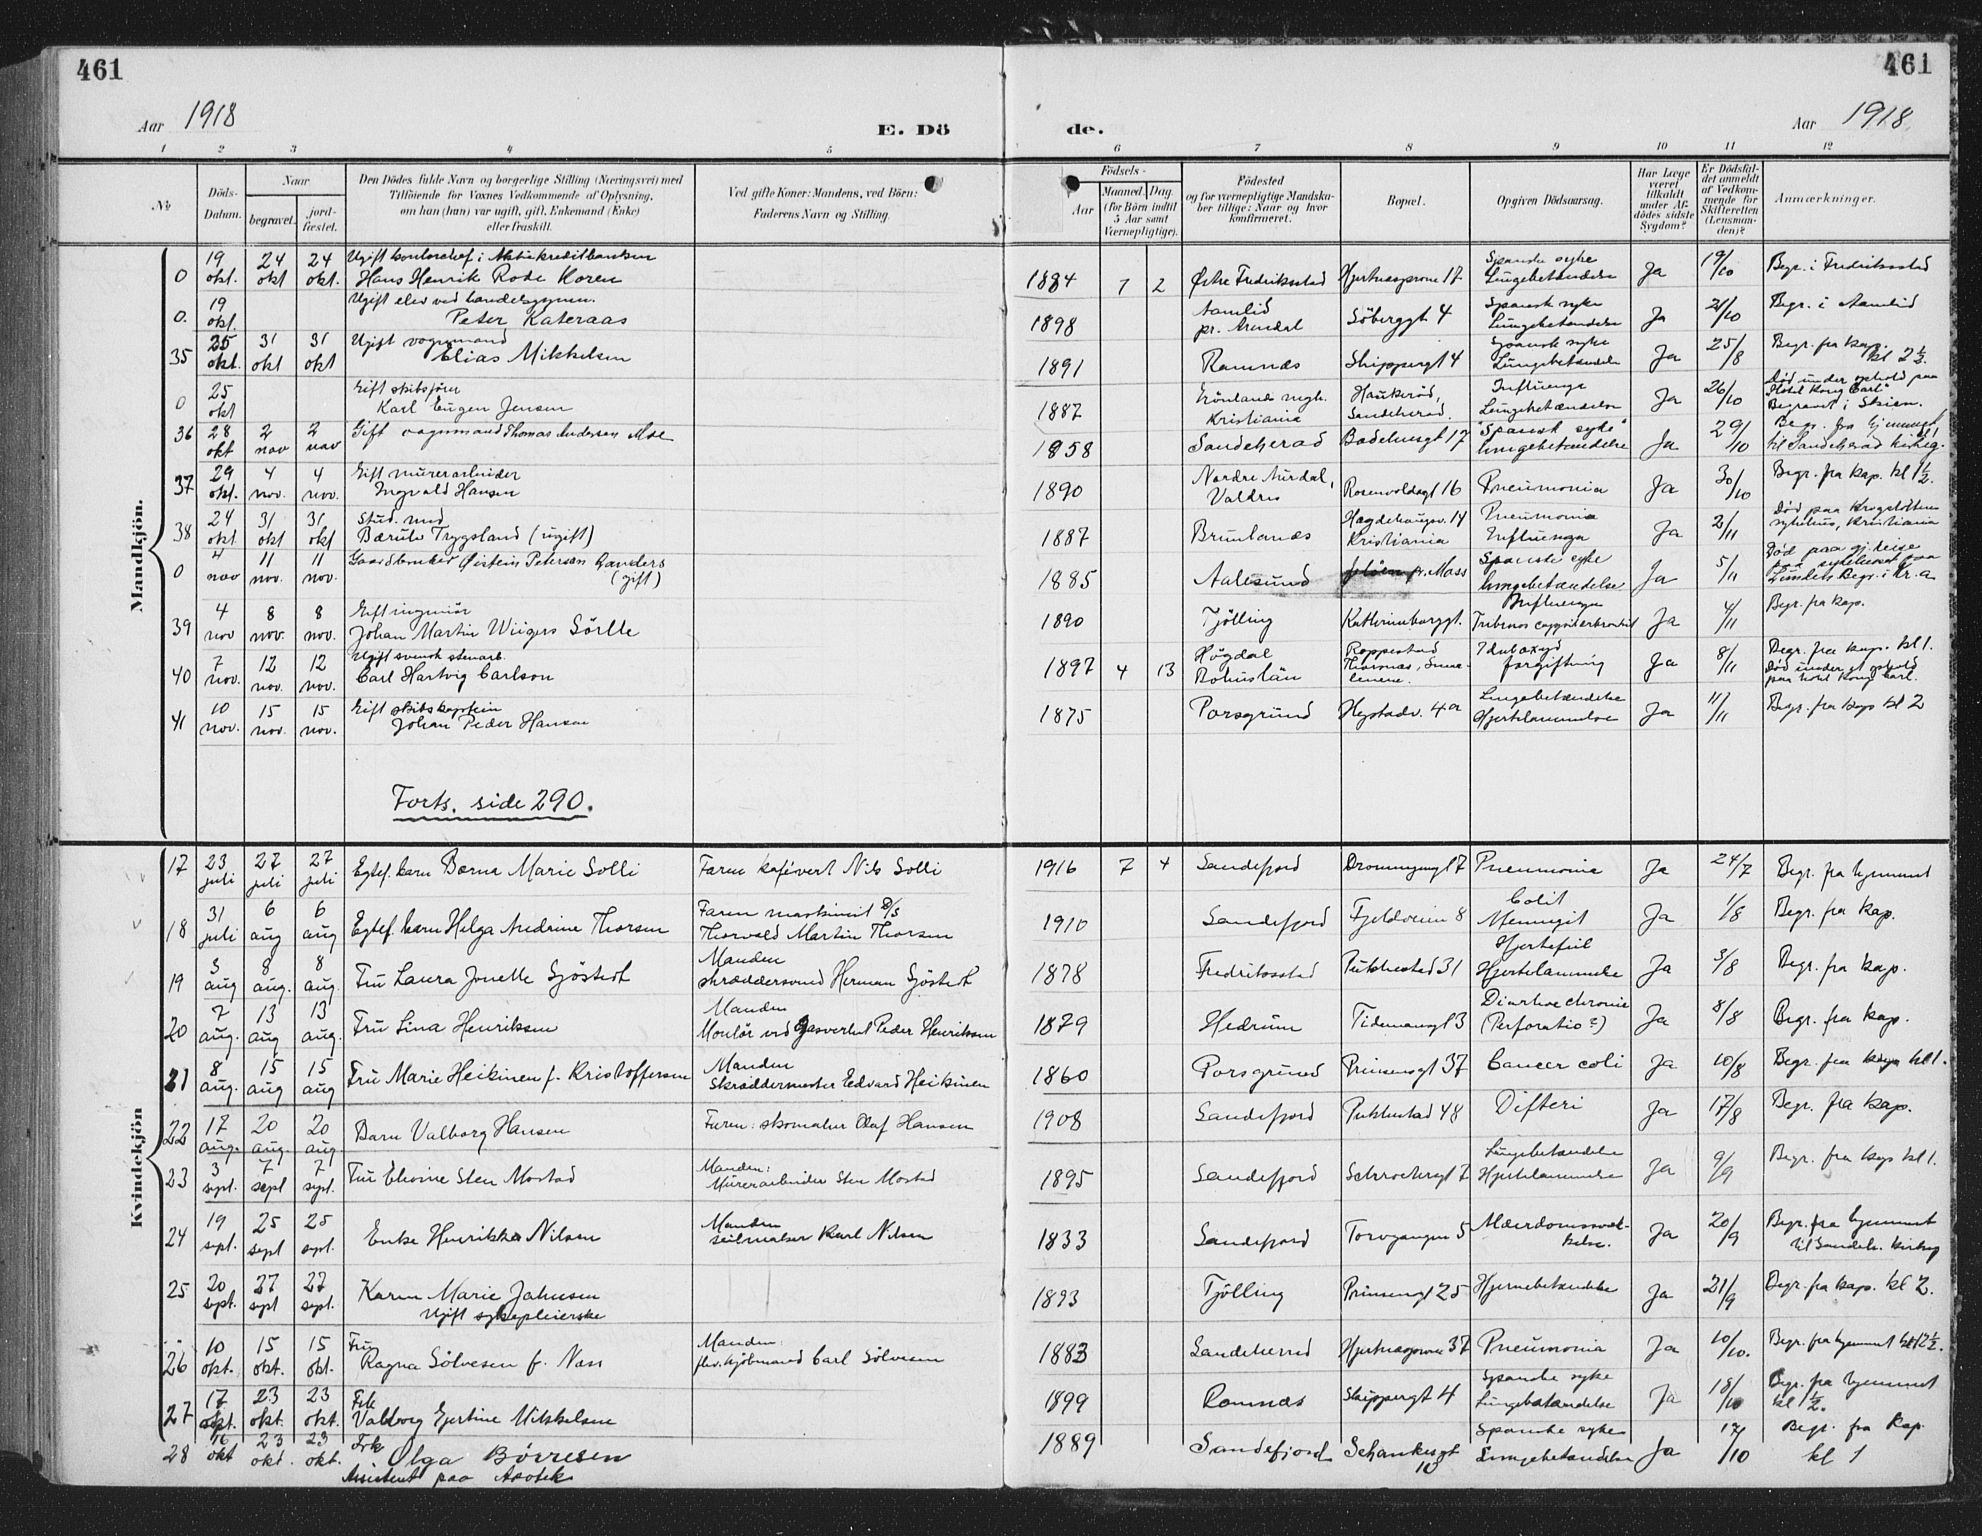 461
461
Aar 1918
E. Dö
de.
Aar 1918.
1 2 3 4 5 6 7 8 9 10 11 12
№
Döds-Datum.
Naar
begravet.
jord-fæstet.
Den Dödes fulde Navn og borgerlige Stilling (Næringsvei) med
Tilföiende for Voxnes Vedkommende af Oplysning,
om han (hun) var ugift, gift, Enkemand (Enke)
eller fraskilt.
Ved gifte Koner: Mandens, ved Börn:
Faderens Navn og Stilling.
Födsels-
Aar
Maaned. Dag.
(for Börn indtil
5 Aar samt
Værnepligtige).
Födested
og for værnepligtige Mandska-
ber tillige: Naar og hvor
konfirmeret.
Bopæl.
Opgiven Dödsaarsag.
Har Læge
været
tilkaldt
under Af-
dödes sidste
Sygdom?
Er Dödsfal-
det anmeldt
af Vedkom-
mende for
Skifteretten
(Lensman-
den)?
Anmærkninger.
Mandkjön.
0 19 okt. 24 okt 24 okt. Ugift kontorchef i Aktiekreditbanken
Hans Henrik Rode Koren 1884 7 2 Östre Fredriksstad Hjertnesprom 17 Spanske syke
Lungebetændelse Ja 19/10 Begr. i Fredriksstad
0. 19 okt. Ugift elev ved landbgymn.
Peter Kateraas 1898 Aamlid
pr. Arendal Söberggt 4 Spansk syke
Lungebetændelse Ja 21/10 Begr. i Aamlid
35 25 okt. 31 okt 31 okt Ugift vognmand
Elias Mikkelsen 1891 Ramnæs Skippergt 4 Spansk syke
Lungebetændelse Ja 25/8 Begr. fra kap.
kl 2½.
0 25 okt Gift skibsförer
Karl Eugen Jensen 1887 Grönlands megh.
Kristiania Haukeröd,
Sandeherad. Influenza
Lungebetændelse Ja 26/10 Död under ophold paa
Hotel Kong Carl"
Begravet i Skien.
36 28 okt 2 nov 2 nov Gift vognmand Thomas Andersen Moe 1858 Sandeherad Badehusgt 17 "Spansk syke"
Lungebetændelse Ja 29/10 Begr. fra hjemmet
til Sandeherad kirkeg.
37 29 okt. 4 nov. 4 nov. Gift murerarbeider
Ingvald Hansen 1890 Nordre Aurdal,
Valdres Rosenvoldsgt 16 Pneumonia Ja 30/10 Begr. fra kap. kl 1½.
38 24 okt 31 okt 31 okt Stud. med
Bærulv Trygsland (ugift) 1887 Brunlanæs Hægdehaugsv. 14
Kristiania Pneumonia
Influenza Ja 2/11 Död paa Krogstötten
sykehus, Kristiania
0 4 nov 11 nov. 11 nov. Gaardbruker Öistein Petersen Ganders
(gift) 1885 Aalesund pr. Moss Spanske syke
Lungebetændelse Ja 5/11 Död paa gj.reise
paa sykehuset paa
Lunden Begr. i Kr.a
39 4 nov 8 nov. 8 nov. Gift ingeniör
Johan Martin Wiigers Sörlle 1890 Tjölling Kathrineborggt. Influenza Ja 4/11 Begr. fra kap.
40 7 nov. 12 nov. 12 nov. Ugift svensk stenarb.
Carl Hartvig Carlson 1897 4 13 Högdal
Bohuslän Roppestad
forgiftning Ja 8/11 Begr. fra kap. kl 1.
Död under et ophold
paa hotel Kong Carl.
41 10 nov. 15 nov. 15 nov. Gift skibskaptein
Johan Peder Hansen 1875 Porsgrund Hystadv. 4a Lungebetændelse
Hjertelammelse Ja 11/11 Begr. fra kap kl 2
Forts. side 290.
Kvindekjön
17 23 juli 27 juli 27 juli Egtef. barn Berna Marie Solli Faren kafévert Nils Solli 1916 7 4 Sandefjord Dronningsgt 7 Pneumonia Ja 24/7 Begr. fra hjemmet
18 31 juli 6 aug 6 aug Egtef. barn Helga Andrine Thorsen Faren maskinist D/S
Thorvald Martin Thorsen 1910 Sandefjord Fjeldveien 8 Colit
Meningit Ja 1/8 Begr. fra kap.
19 3 aug 8 aug. 8 aug. Fru Laura Jonette Sjöstedt Manden
skræddersvend Herman Sjöstedt 1878 Fredriksstad Pukkestad 31 Hjertefeil
Hjertelammelse Ja 3/8 Begr. fra kap.
20 7 aug. 13 aug 13 aug. Fru Lina Henriksen Manden
Montör ved Gasverket Peder Henriksen 1879 Hedrum Tidemansgt 3 Diarrhoe chronic
(Perforatio?) Ja 8/8 Begr. fra kap.
21 8 aug. 15 aug 15 aug Fru Marie Heikinen f. Kristoffersen Manden
Skræddermester Edvard Heikinen 1860 Porsgrund Prinsensgt 37 Cancer coli Ja 10/8 Begr. fra kap kl 1.
22 17 aug. 20 aug. 20 aug. Barn Valborg Hansen Faren: skomaker Olaf Hansen 1908 Sandefjord Pukkestad 48 Difteri Ja 17/8 Begr. fra kap.
23 3 sept. 7 sept 7 sept. Fru Elvine Sten Mostad Manden:
Murerarbeider Sten Mostad 1895 Sandefjord Schrockersgt 7 Lungebetændelse
Hjertelammelse Ja 9/9 Begr. fra kap kl 1.
24 19 sept. 25 sept 25 sept. Enke Henrikka Nilsen Manden
seilmaker Karl Nilsen 1833 Sandefjord Torvgangen 5 Alderdomssvæk-
kelse. Ja 20/9 Begr. fra hjemmet
til Sandeh. kirkeg
25 20 sept. 27 sept 27 sept. Karen Marie Jahnsen
Ugift sykepleierske 1893 Tjölling Prinsensgt 25 Hjernebetændelse Ja 21/9 Begr. fra kap. kl 2.
26 10 okt. 15 okt. 15 okt. Fru
Ragna Sölvesen f. Næss Manden:
fhv. kjöbmand Carl Sölvesen 1883 Sandeherred Hjertnesprom 37 Pneumonia Ja 10/10. Begr. fra hjemmet kl 12½.
27 17 okt. 23 okt. 23 okt. Frk
Valborg Gjertine Mikkelsen 1899 Ramnæs Skippergt 4 Spanske syke
Lungebetændelse Ja 18/10 Begr. fra hjemmet
kl 1½.
28 16 okt 23 okt. 23 okt. Frk Olga Börresen
Assistent paa Apotek 1889 Sandefjord Schankesgt
10 Spanske syke
Lungebetændelse Ja 17/10 Begr. fra kap
kl 1